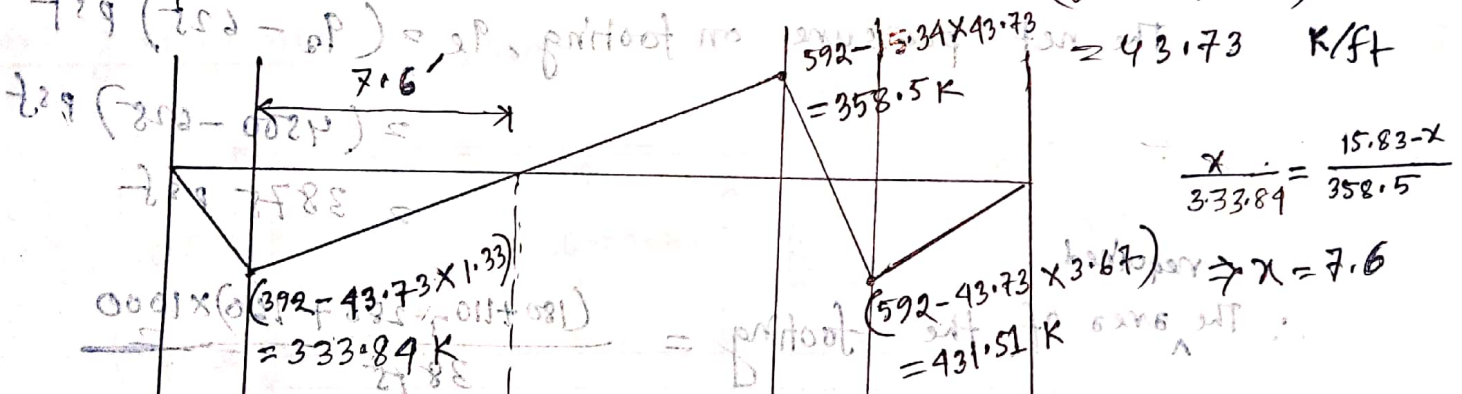 7.6'
592-15.34×43.73
=358.5 K
= 43.73 K/ft
x/333.84 = 15.83-x/358.5
⇒ x = 7.6
(392-43.73×1.33)
=333.84 K
(592-43.73×3.67)
=431.51 K